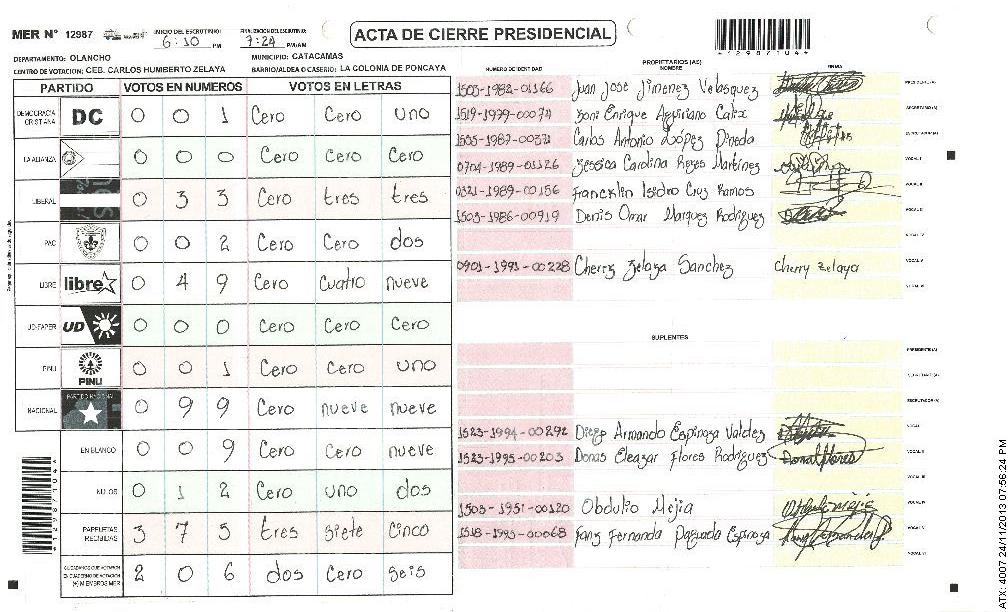 MER Nº 12987
INICIO DEL ESCRUTINIO: 6:10 PM
FINALIZACION DEL ESCRUTINIO: 7:24 PM/AM
ACTA DE CIERRE PRESIDENCIAL
DEPARTAMENTO: OLANCHO
MUNICIPIO: CATACAMAS
CENTRO DE VOTACION: CEB. CARLOS HUMBERTO ZELAYA
BARRIO/ALDEA O CASERIO: LA COLONIA DE PONCAYA
PARTIDO VOTOS EN NUMEROS VOTOS EN LETRAS
DEMOCRACIA CRISTIANA DC 0 0 1 Cero Cero uno
LA ALIANZA 0 0 0 Cero Cero Cero
LIBERAL 0 3 3 Cero tres tres
PAC 0 0 2 Cero Cero dos
LIBRE libre 0 4 9 Cero cuatro nueve
UD-FAPER UD 0 0 0 Cero Cero Cero
PINU PINU 0 0 1 Cero Cero uno
NACIONAL PARTIDO NACIONAL 0 9 9 Cero nueve nueve
EN BLANCO 0 0 9 Cero Cero nueve
NULOS 0 1 2 Cero uno dos
PAPELETAS RECIBIDAS 3 7 5 tres siete cinco
CIUDADANOS QUE VOTARON EN CUADERNO DE VOTACION (+) MIEMBROS MER 2 0 6 dos Cero seis
NUMERO DE IDENTIDAD
PROPIETARIOS (AS)
NOMBRE
FIRMA
1503-1982-01166 Juan Jose Jimenez Velasquez PRESIDENTE(A)
1519-1979-00074 Calix SECRETARIO(A)
1503-1987-00371 Carlos Antonio López Pineda ESCRUTADOR(A)
0704-1989-01126 Jessica Carolina Reyes Martinez VOCAL I
0321-1989-00156 Francklin Isidro Cruz Ramos VOCAL II
1503-1986-00919 Denis Omar Marquez Rodriguez VOCAL III
VOCAL IV
0901-1991-00228 Cherry Zelaya Sanchez Cherry Zelaya VOCAL V
VOCAL VI
SUPLENTES
PRESIDENTE(A)
SECRETARIO(A)
ESCRUTADOR(A)
1523-1994-00292 Diego Armando Espinoza Valdez VOCAL I
1523-1995-00203 Donas Eleazar Flores Rodriguez VOCAL II
VOCAL III
1503-1951-00120 Obdulio Mejia VOCAL IV
1518-1993-00068 Fany Fernanda Espinoza VOCAL V
VOCAL VI
*12987104*
*12987104*
ATX: 4007 24/11/2013 07:56:24 PM